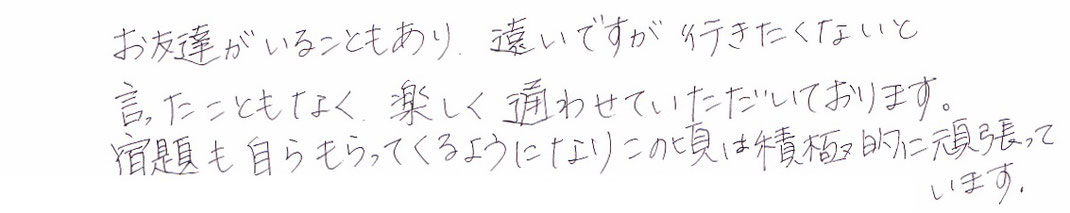 お友達がいることもあり、遠いですが行きたくないと
言ったこともなく、楽しく通わせていただいております。
宿題も自らもらってくるようになりこの頃は積極的に頑張って
います。